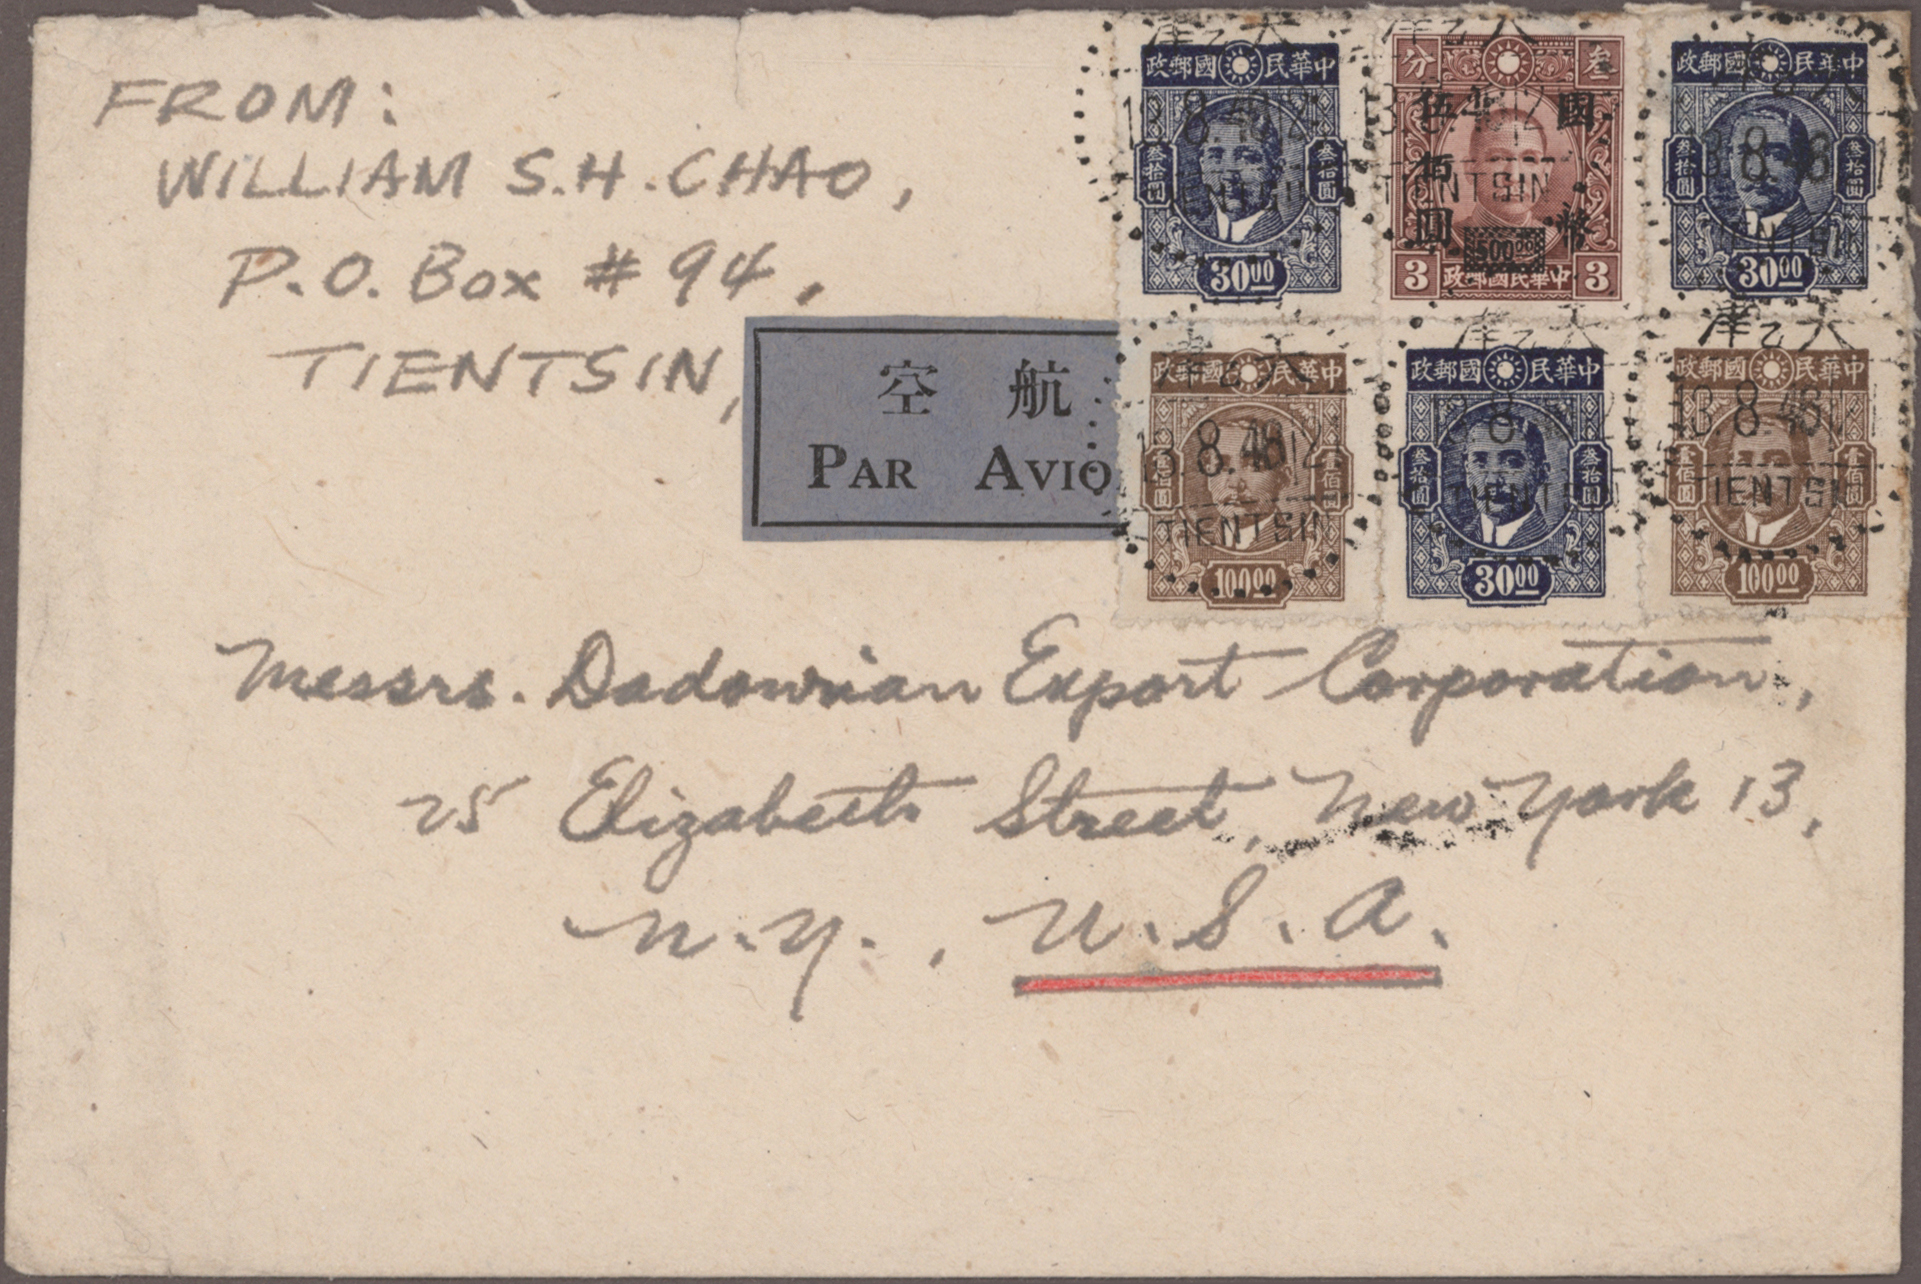 FROM:
WILLIAM S.H. CHAO,
P.O. Box # 94,
TIENTSIN,
空 航
PAR AVIO
政郵國民華中
叁拾圓
叁拾圓
30 00
分 叁
國幣
伍佰圓
500 00
3 政郵國民華中 3
13.8.46.12
TIENTSIN
政郵國民華中
叁拾圓
叁拾圓
30 00
政郵國民華中
壹佰圓
100 00
13.8.46.12
TIENTSIN
政郵國民華中
叁拾圓
叁拾圓
30 00
TIENTSIN
政郵國民華中
壹佰圓
壹佰圓
100 00
13.8.46
TIENTSIN
Messrs. Dadowrian Export Corporation,
25 Elizabeth Street, New York 13,
N.Y., U.S.A.